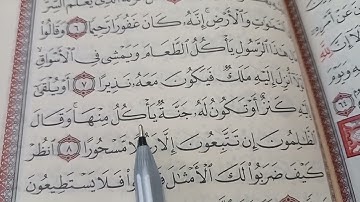 يَعْلَمُ ٱلسِّرَّ
ٱلسَّمَٰوَٰتِ وَٱلْأَرْضِ إِنَّهُۥ كَانَ غَفُورًا رَّحِيمًا ٦ وَقَالُوا۟
هَٰذَا ٱلرَّسُولِ يَأْكُلُ ٱلطَّعَامَ وَيَمْشِى فِى ٱلْأَسْوَاقِ
أُنزِلَ إِلَيْهِ مَلَكٌ فَيَكُونَ مَعَهُۥ نَذِيرًا ٧ أَوْ يُلْقَىٰٓ
إِلَيْهِ كَنزٌ أَوْ تَكُونُ لَهُۥ جَنَّةٌ يَأْكُلُ مِنْهَا وَقَالَ
ٱلظَّٰلِمُونَ إِن تَتَّبِعُونَ إِلَّا رَجُلًا مَّسْحُورًا ٨ ٱنظُرْ
كَيْفَ ضَرَبُوا۟ لَكَ ٱلْأَمْثَٰلَ فَضَلُّوا۟ فَلَا يَسْتَطِيعُونَ